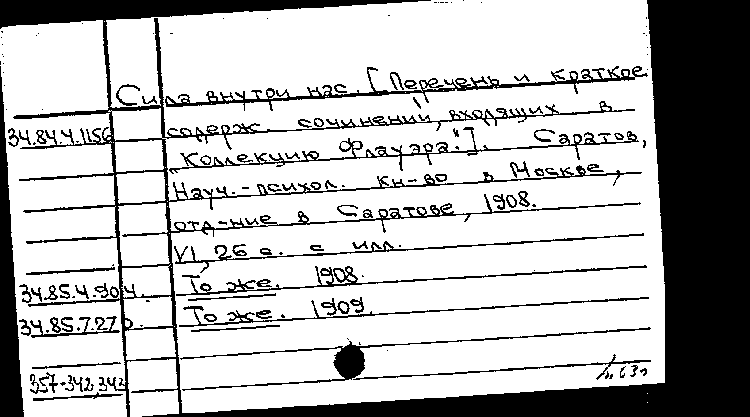 Сила внутри нас. [Перечень и краткое
34.84.4.1156 содерж. сочинений, входящих в
"Коллекцию Флауэра".]. Саратов,
Науч.-психол. кн-во в Москве,
отд-ние в Саратове, 1908.
VI, 26 с. с илл.
34.85.4.904. То же. 1908.
34.85.7.27 То же. 1909.
357-342,343